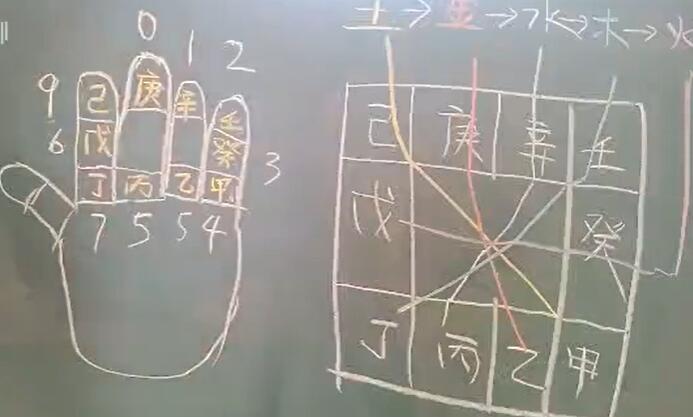 土→金→水→木→火
0
1
2
9 己 庚 辛 壬
6 戊 癸 3
丁 丙 乙 甲
7 5 5 4
己 庚 辛 壬
戊 癸
丁 丙 乙 甲